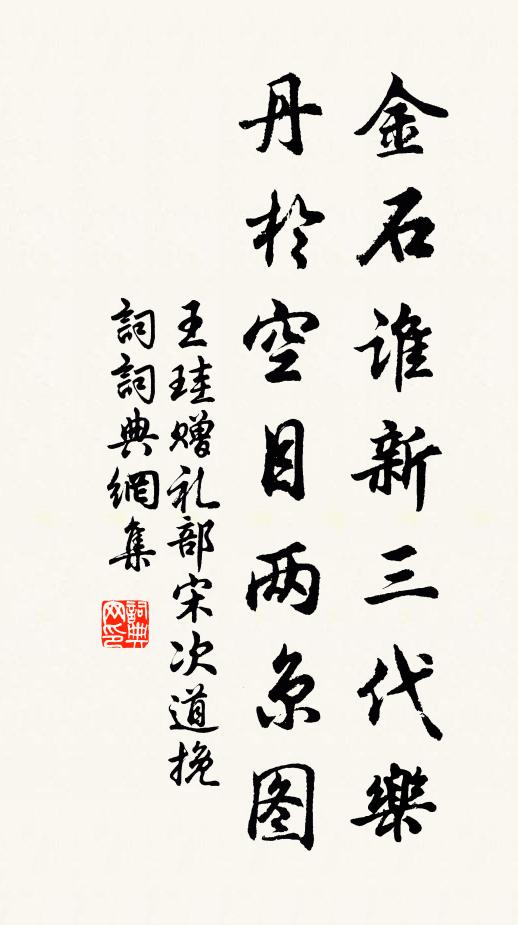 金石谁新三代樂
丹於空目两京图
王珪赠礼部宋次道挽
詞詞典網集
詞典
网印